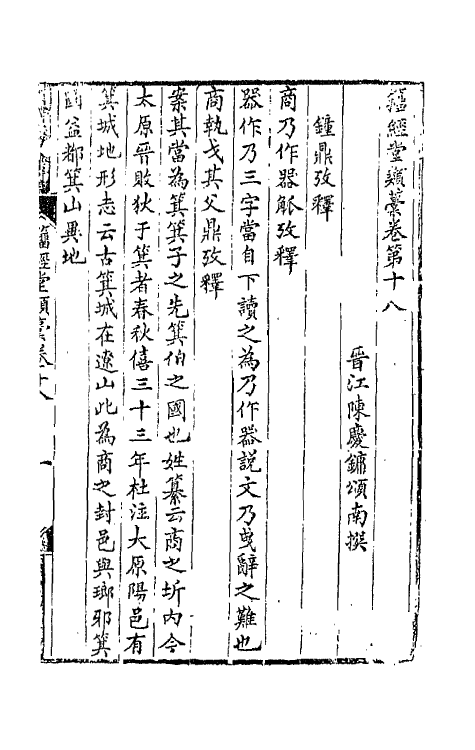 籒經堂類藁卷第十八
晉江陳慶鏞頌南撰
鐘鼎攷釋
商乃作器觚攷釋
器作乃三字當自下讀之為乃作器説文乃曳辭之難也
商執戈其父鼎攷釋
案其當為箕箕子之先箕伯之國也姓纂云商之圻内今
太原晉敗狄于箕者春秋僖三十三年杜注大原陽邑有
箕城地形志云古箕城在遼山此為商之封邑與瑯邪箕
國益都箕山異地
籒經堂類藁卷十八
一